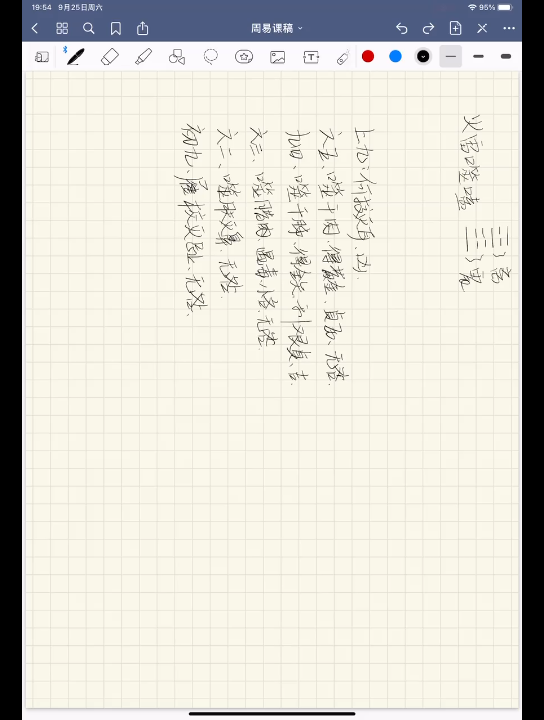 19:54 9月25日周六 95%
周易课稿
火雷噬嗑
上九、何校灭耳、凶.
六五、噬干肉.得黄金.贞厉、无咎.
九四、噬干胏.得金矢.利艰贞、吉.
六三、噬腊肉.遇毒.小吝.无咎.
六二、噬肤灭鼻.无咎.
初九、屦校灭趾、无咎.